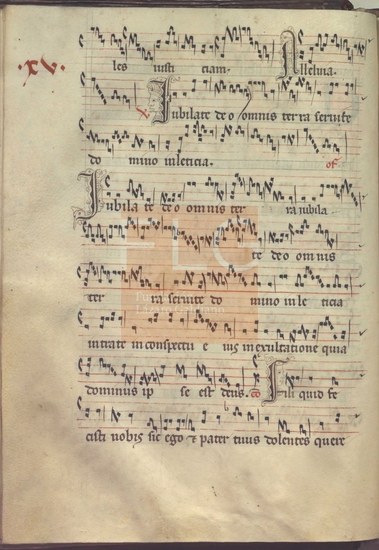 .xv.
les iusti ciam. Alleluia.
V Iubilate deo omnis terra seruite
do mino in leticia. of
Iubila te deo omnis ter ra iubila
te deo omnis
ter ra seruite do mino in le ticia
intrate in conspectu e ius in exultatione quia
dominus ip se est deus. co Fili quid fe
cisti nobis sic ego & pater tuus dolentes quere